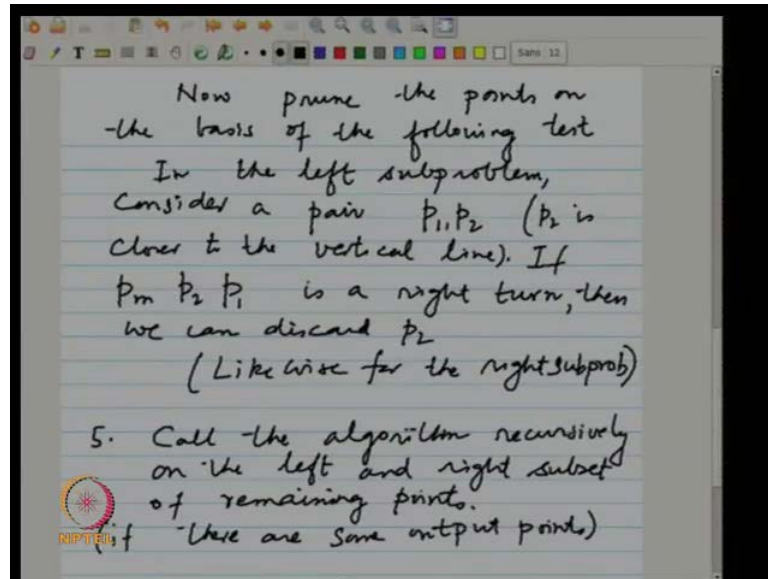 Sans 12
Now prune the points on
the basis of the following test
In the left subproblem,
Consider a pair p1, p2 (p2 is
closer to the vertical line). If
pm p2 p1 is a right turn, then
we can discard p2
(Likewise for the right subprob)
5. Call the algorithm recursively
on the left and right subset
of remaining points.
(if there are some output points)
NPTEL